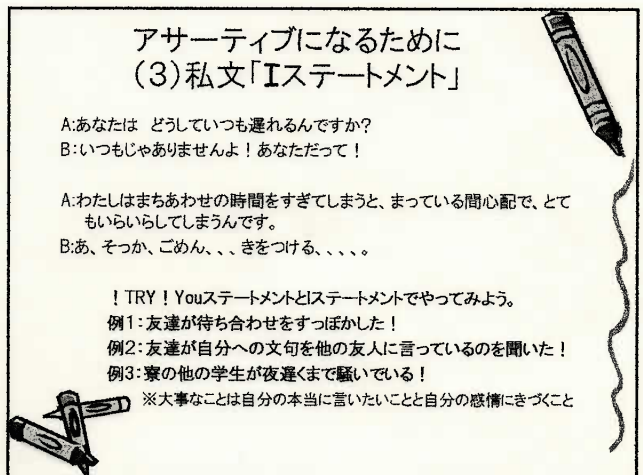 アサーティブになるために
(3)私文「Iステートメント」
A:あなたは どうしていつも遅れるんですか?
B:いつもじゃありませんよ!あなただって!
A:わたしはまちあわせの時間をすぎてしまうと、まっている間心配で、とて
もいらいらしてしまうんです。
B:あ、そっか、ごめん、、、きをつける、、、、。
!TRY!YouステートメントとIステートメントでやってみよう。
例1:友達が待ち合わせをすっぽかした!
例2:友達が自分への文句を他の友人に言っているのを聞いた!
例3:寮の他の学生が夜遅くまで騒いでいる!
※大事なことは自分の本当に言いたいことと自分の感情にきづくこと